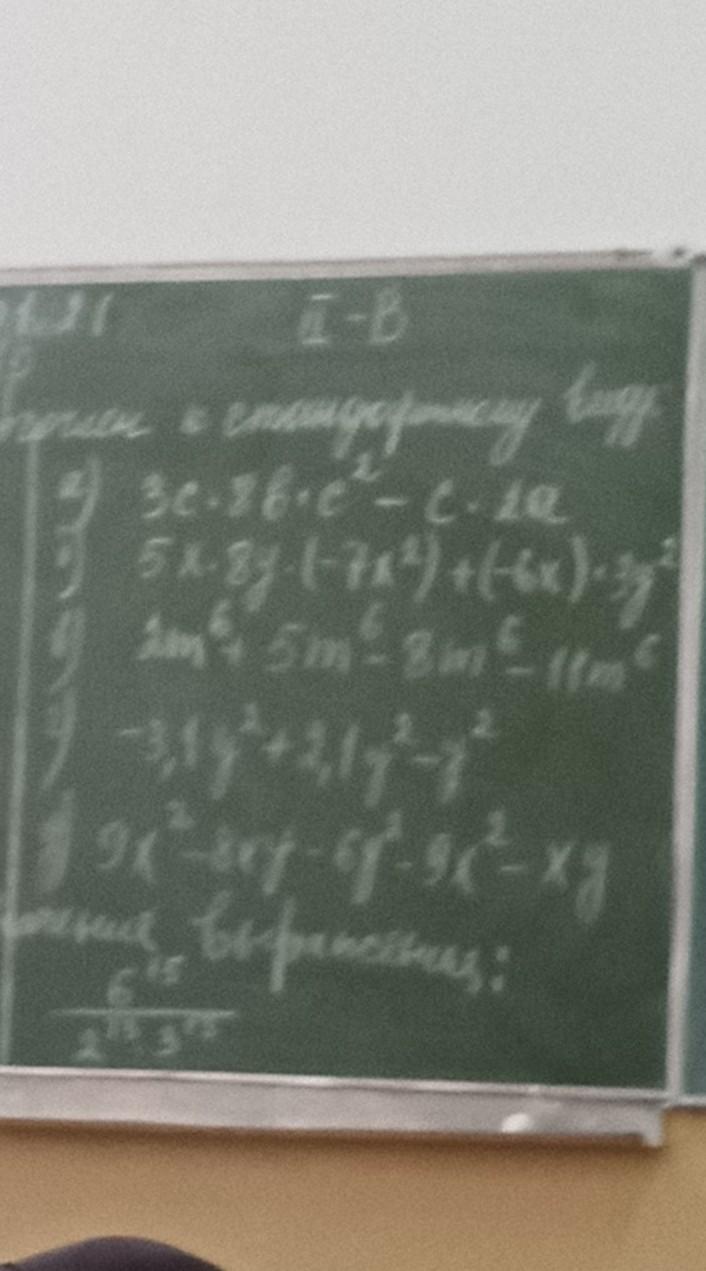 II-В
к стандартному виду
а) 3c·8b·c² - c·2a
5x·8y·(-7x²)+(-6x)·3y²
2m⁶+5m⁶-8m⁶-11m⁶
-3,1y²+2,1y²-y²
9x²-8xy-6y²-9x²-xy
выражения:
6¹⁵
2¹⁵·3¹⁵